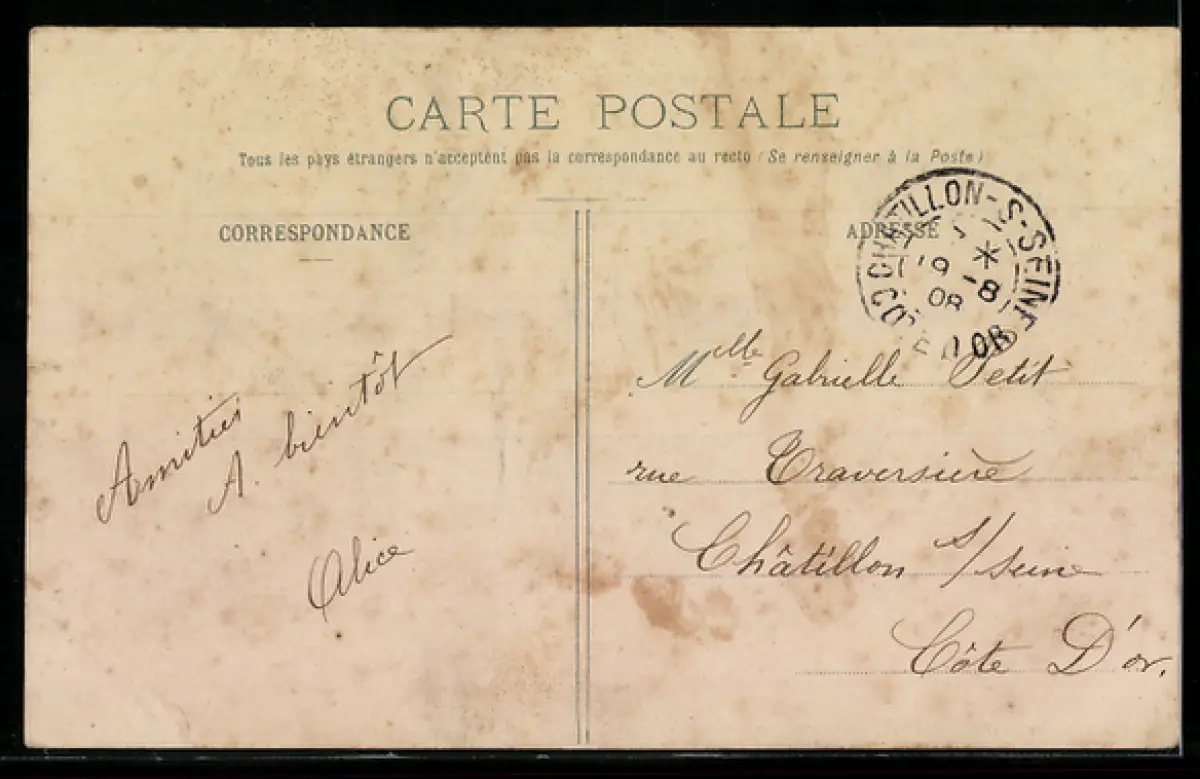 CARTE POSTALE
Tous les pays étrangers n'acceptent pas la correspondance au recto (Se renseigner à la Poste)
CORRESPONDANCE
ADRESSE
CHATILLON-S-SEINE
19 -8
08
COTE D'OR
Amitiés
A. bientôt
Alice
Mlle Gabrielle Petit
rue Traversière
Châtillon s/seine
Côte D'or.